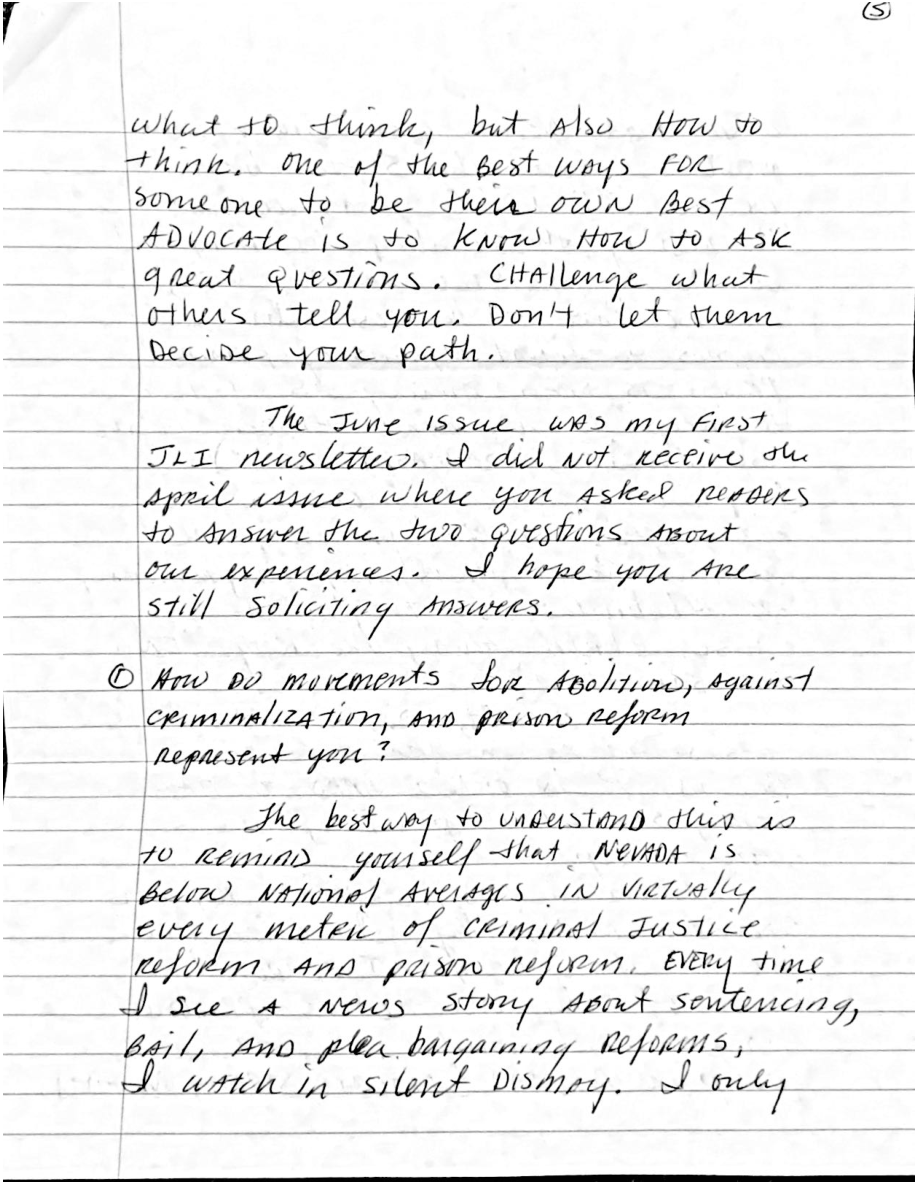 (5)
what to think, but also HOW to
think. One of the BEST WAYS FOR
someone to be their OWN BEST
ADVOCATE is to KNOW HOW to ASK
great QUESTIONS. CHALLENGE what
others tell you. Don't let them
DECIDE your path.
The June ISSUE WAS my FIRST
JLI newsletter. I did NOT receive the
April issue where you ASKED READERS
to ANSWER the two questions ABOUT
our experiences. I hope you ARE
still soliciting ANSWERS.
① HOW DO movements for Abolition, Against
CRIMINALIZATION, AND prison Reform
represent you?
The best way to UNDERSTAND this is
to REMIND yourself that NEVADA is
Below NATIONAL AVERAGES IN VIRTUALLY
every metric of CRIMINAL Justice
reform AND prison reform. EVERY time
I see A NEWS story ABOUT sentencing,
BAIL, AND plea bargaining Reforms,
I WATCH in silent DISMAY. I only